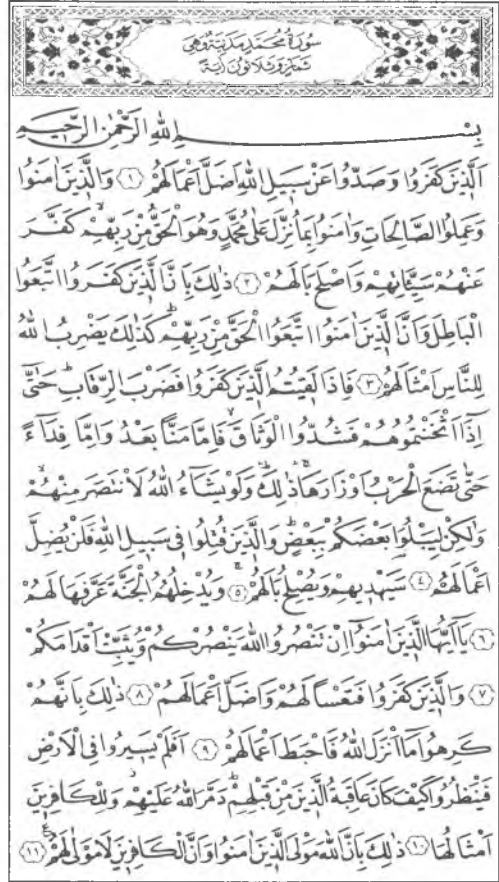 سُورَةُ مُحَمَّدٍ مَدَنِيَّةٌ وَهِيَ
ثَمَانٍ وَثَلَاثُونَ اٰيَةً
بِسْمِ اللّٰهِ الرَّحْمٰنِ الرَّحِيمِ
اَلَّذِينَ كَفَرُوا وَصَدُّوا عَنْ سَبِيلِ اللّٰهِ اَضَلَّ اَعْمَالَهُمْ ﴿١﴾ وَالَّذِينَ اٰمَنُوا
وَعَمِلُوا الصَّالِحَاتِ وَاٰمَنُوا بِمَا نُزِّلَ عَلٰى مُحَمَّدٍ وَهُوَ الْحَقُّ مِنْ رَبِّهِمْۙ كَفَّرَ
عَنْهُمْ سَيِّئَاتِهِمْ وَاَصْلَحَ بَالَهُمْ ﴿٢﴾ ذٰلِكَ بِاَنَّ الَّذِينَ كَفَرُوا اتَّبَعُوا
الْبَاطِلَ وَاَنَّ الَّذِينَ اٰمَنُوا اتَّبَعُوا الْحَقَّ مِنْ رَبِّهِمْۜ كَذٰلِكَ يَضْرِبُ اللّٰهُ
لِلنَّاسِ اَمْثَالَهُمْ ﴿٣﴾ فَاِذَا لَقِيتُمُ الَّذِينَ كَفَرُوا فَضَرْبَ الرِّقَابِۜ حَتّٰٓى
اِذَٓا اَثْخَنْتُمُوهُمْ فَشُدُّوا الْوَثَاقَۙ فَاِمَّا مَنًّا بَعْدُ وَاِمَّا فِدَٓاءً
حَتّٰى تَضَعَ الْحَرْبُ اَوْزَارَهَا ذٰلِكَۜ وَلَوْ يَشَٓاءُ اللّٰهُ لَانْتَصَرَ مِنْهُمْۙ
وَلٰكِنْ لِيَبْلُوَا بَعْضَكُمْ بِبَعْضٍۜ وَالَّذِينَ قُتِلُوا فِي سَبِيلِ اللّٰهِ فَلَنْ يُضِلَّ
اَعْمَالَهُمْ ﴿٤﴾ سَيَهْدِيهِمْ وَيُصْلِحُ بَالَهُمْۚ ﴿٥﴾ وَيُدْخِلُهُمُ الْجَنَّةَ عَرَّفَهَا لَهُمْ
﴿٦﴾ يَٓا اَيُّهَا الَّذِينَ اٰمَنُٓوا اِنْ تَنْصُرُوا اللّٰهَ يَنْصُرْكُمْ وَيُثَبِّتْ اَقْدَامَكُمْ
﴿٧﴾ وَالَّذِينَ كَفَرُوا فَتَعْسًا لَهُمْ وَاَضَلَّ اَعْمَالَهُمْ ﴿٨﴾ ذٰلِكَ بِاَنَّهُمْ
كَرِهُوا مَٓا اَنْزَلَ اللّٰهُ فَاَحْبَطَ اَعْمَالَهُمْ ﴿٩﴾ اَفَلَمْ يَسِيرُوا فِي الْاَرْضِ
فَيَنْظُرُوا كَيْفَ كَانَ عَاقِبَةُ الَّذِينَ مِنْ قَبْلِهِمْۜ دَمَّرَ اللّٰهُ عَلَيْهِمْۘ وَلِلْكَافِرِينَ
اَمْثَالُهَا ﴿١٠﴾ ذٰلِكَ بِاَنَّ اللّٰهَ مَوْلَى الَّذِينَ اٰمَنُوا وَاَنَّ الْكَافِرِينَ لَا مَوْلٰى لَهُمْ۟ ﴿١١﴾